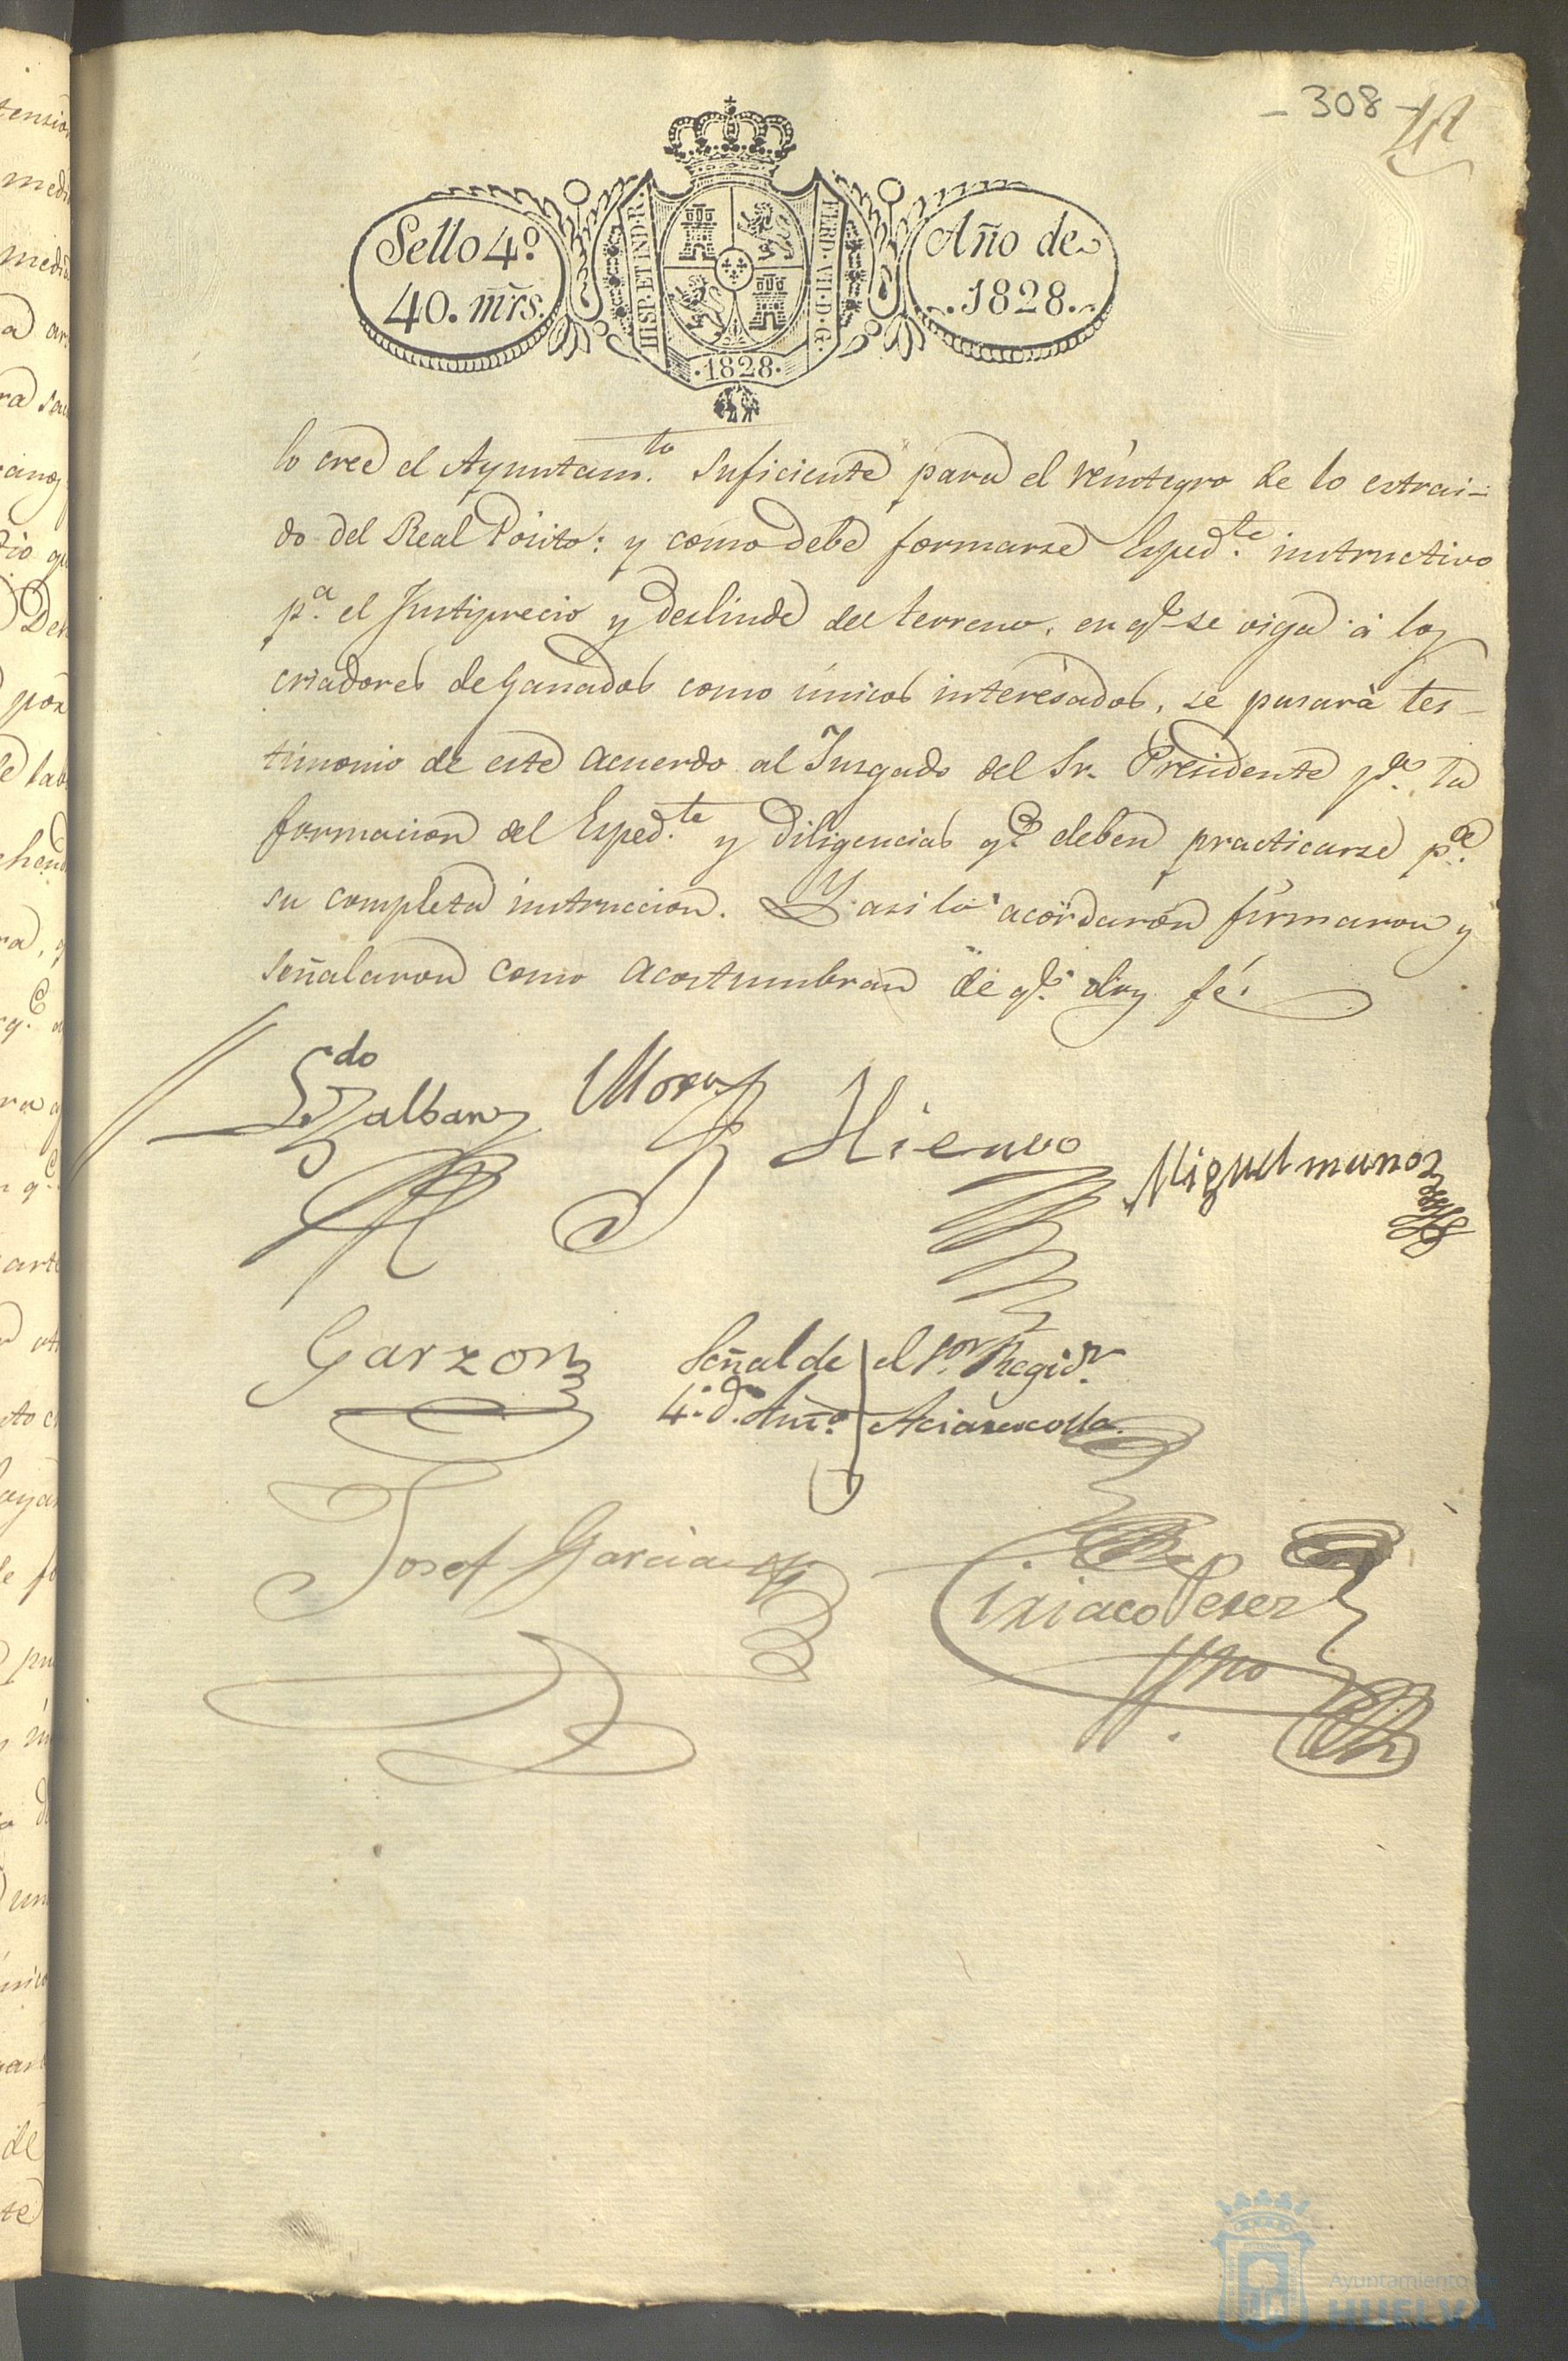 - 308 -
Sello 4º
40. mrs.
HISP. ET IND. R.
FERD. VII. D. G.
·1828·
Año de
1828.
lo cree el Ayuntam.to suficiente para el reintegro de lo estrai-
do del Real Pósito: y como debe formarse Esped.te instructivo
p.a el Justiprecio y deslinde del terreno, en q.e se oiga á los
criadores de Ganados como únicos interesados, se pasará tes-
timonio de este acuerdo al Jusgado del Sr. Presidente p.a la
formacion del Esped.te y diligencias q.e deben practicarse p.a
su completa instruccion. Y asi lo acordaron firmaron y
señalaron como acostumbran de q.e doy fé.
Ldo
Mora
Hierro
Miguel munoz
Garzon
Señal de el s.or Regid.r
4.º d.n Ant.º
Josef Garcia
Ciriaco Perez
Ayuntamiento de
HUELVA